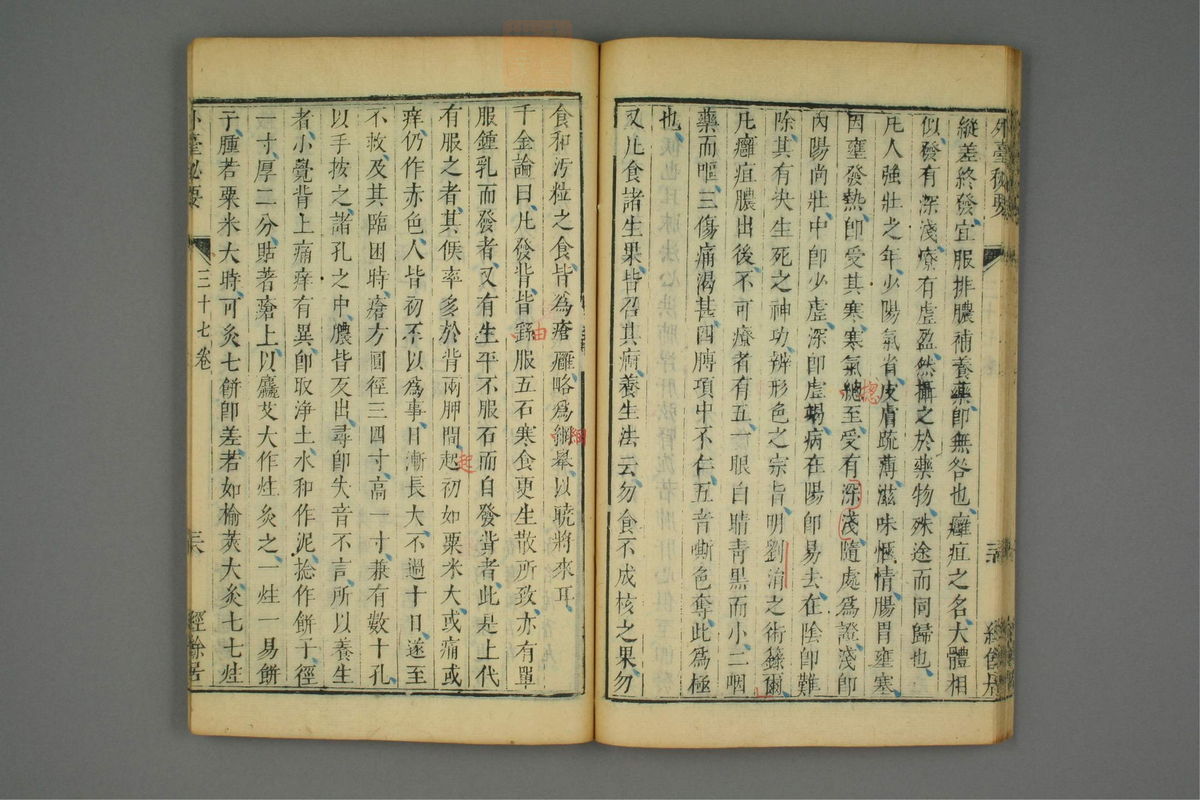 外臺秘要
縱差終發宜服排膿補養藥卽無咎也癰疽之名大體相
似發有深淺療有虛盈然攝之於藥物殊途而同歸也
凡人強壯之年少陽氣省皮膚疏薄滋味愜情腸胃壅塞
因壅發熱卽受其寒寒氣總至受有深淺隨處爲證淺卽
內陽尚壯中卽少虛深卽虛竭病在陽卽易去在陰卽難
除其有決生死之神功辨形色之宗旨明劉涓之術籙爾
凡癰疽膿出後不可療者有五一眼白睛靑黑而小二咽
藥而嘔三傷痛渴甚四膊項中不仁五音嘶色奪此爲極
也
又凡食諸生果皆召其病養生法云勿食不成核之果勿
食和汚粒之食皆爲瘡癰略爲綱舉以曉將來耳
綱
千金論曰凡發背皆繇服五石寒食更生散所致亦有單
由
服鍾乳而發者又有生平不服石而自發背者此是上代
有服之者其候率多於背兩胛間起初如粟米大或痛或
起
痒仍作赤色人皆初不以爲事日漸長大不過十日遂至
不救及其臨困時瘡方圓徑三四寸高一寸兼有數十孔
以手按之諸孔之中膿皆反出尋卽失音不言所以養生
者小覺背上痛痒有異卽取淨土水和作泥捻作餅子徑
一寸厚二分貼著瘡上以麤艾大作炷灸之一炷一易餅
子腫若粟米大時可灸七餅卽差若如榆莢大灸七七炷
外臺秘要
三十七卷
經餘居